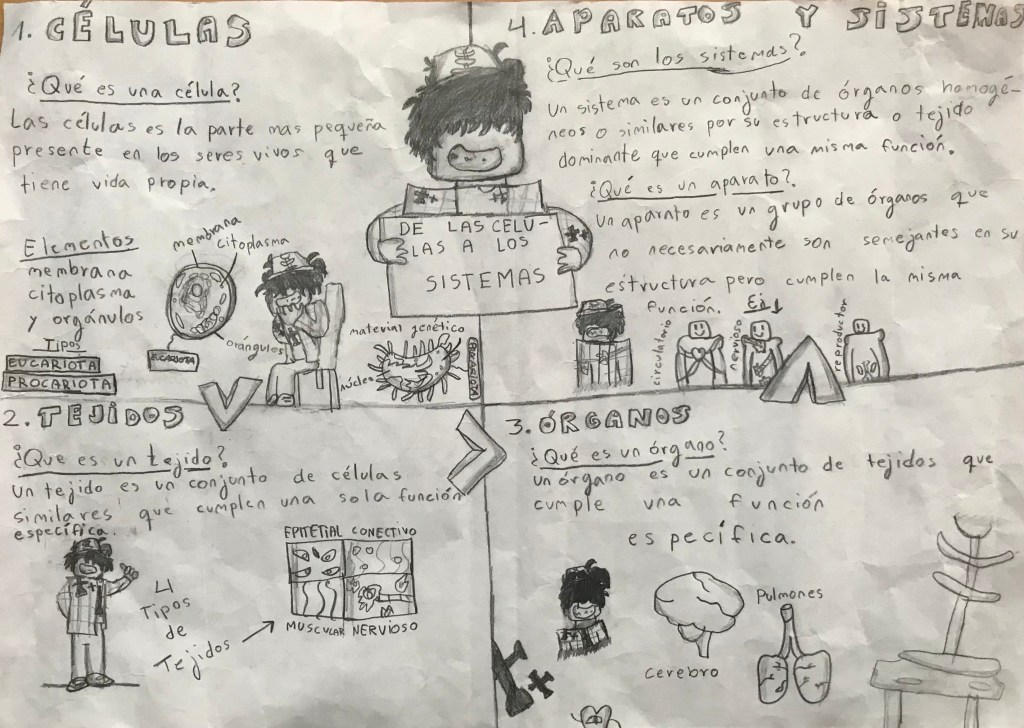 1. CÉLULAS
¿Qué es una célula?
Las células es la parte mas pequeña
presente en los seres vivos que
tiene vida propia.
Elementos
membrana
citoplasma
y orgánulos
Tipos
EUCARIOTA
PROCARIOTA
membrana
citoplasma
orángulos
material genético
núcleo
PROCARIOTA
DE LAS CELU-
LAS A LOS
SISTEMAS
2. TEJIDOS
¿Que es un tejido?
un tejido es un conjunto de células
similares que cumplen una sola función
específica.
4
Tipos
de
Tejidos
EPITETIAL CONECTIVO
MUSCULAR NERVIOSO
3. ÓRGANOS
¿Qué es un órgano?
un órgano es un conjunto de tejidos que
cumple una función
específica.
cerebro
Pulmones
4. APARATOS Y SISTEMAS
¿Qué son los sistemas?
un sistema es un conjunto de órganos homogé-
neos o similares por su estructura o tejido
dominante que cumplen una misma función.
¿Qué es un aparato?
un aparato es un grupo de órganos que
no necesariamente son semejantes en su
estructura pero cumplen la misma
función. Ej
circulatorio
nervioso
reproductor